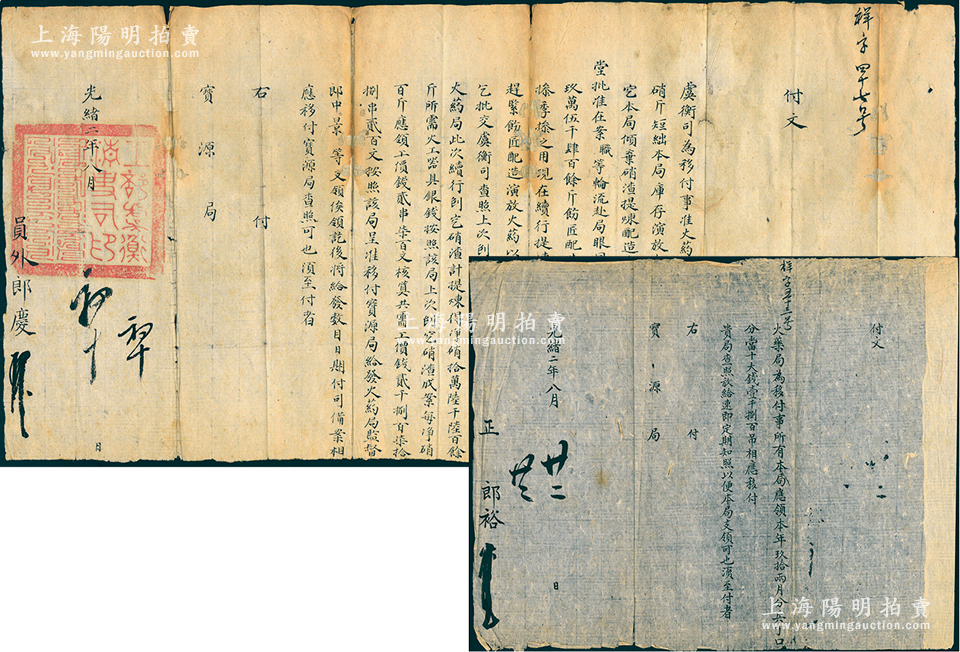 上海陽明拍賣
www.yangmingauction.com
上海陽明拍賣
www.yangmingauction.com
上海陽明拍賣
www.yangmingauction.com
上海陽明拍賣
www.yangmingauction.com
祥字四十七号
付文
虞衡司為移付事准火药
硝斤短絀本局庫存演放
定本局傾棄硝渣提煉配造
堂批准在案職等輪流赴局眼同
玖萬伍千肆百餘斤飭匠配
操季操之用現在續行提
趕緊飭匠配造演放火药以
乞批交虞衡司查照上次刨
火药局此次續行刨挖硝渣計提煉得净硝拾萬陸千陸百餘
斤所需火工器具銀錢按照該局上次刨挖硝渣成案每净硝
百斤應領工價錢貳串柒百文核算共需工價錢貳千捌百柒拾
捌串貳百文按照該局呈准移付寳源局給發火药局監督
郎中景 等支領俟領訖後將給發数目日期付司備案相
應移付寳源局查照可也須至付者
右付
寳源局
光緒二年八月
日
員外郎慶
祥字五十三号
付文
火藥局為移付事所有本局應領本年玖拾兩月分
分當十大錢壹千捌百吊相應移付
貴局查照放給速即定期知照以便本局支領可也須至付者
右付
寳源局
光緒二年八月
廿二
日
正郎裕